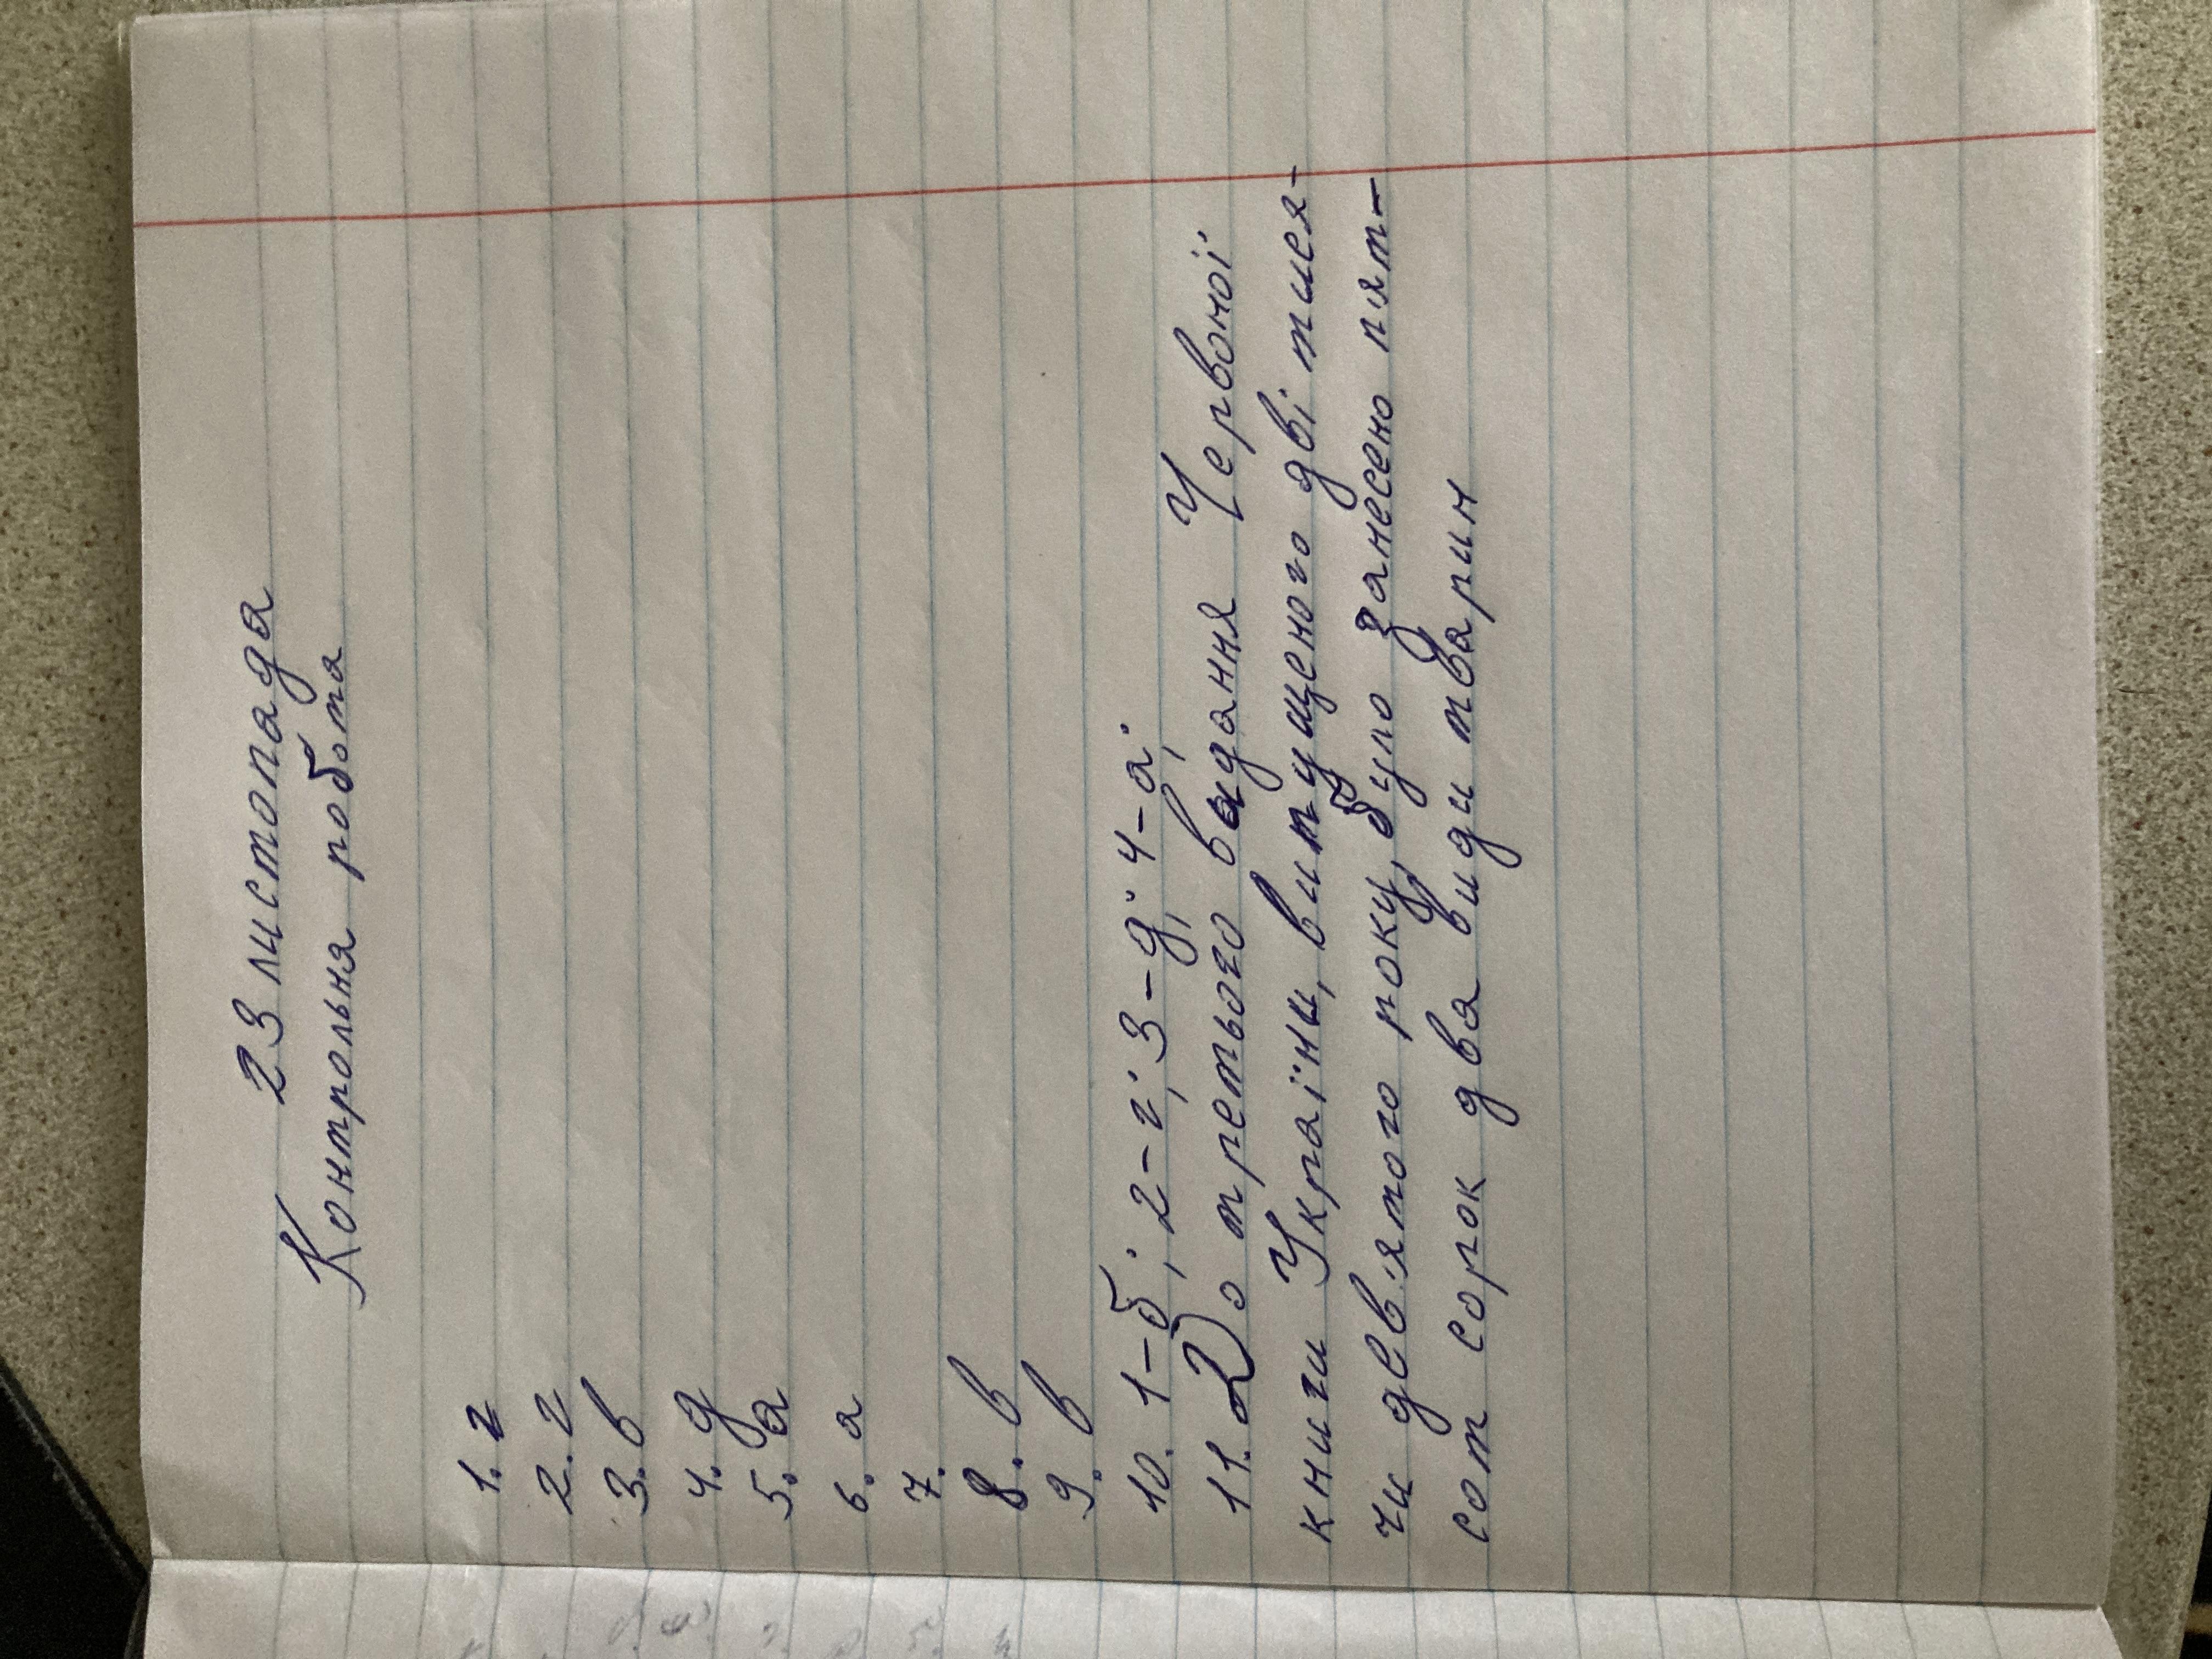 23 листопада
Контрольна робота
1. г
2. г
3. в
4. д
5. а
6. а
7.
8. в
9. в
10. 1-б; 2-г; 3-д; 4-а;
11. До третього видання Червоної
книги України, випущеного дві тися-
чи дев'ятого року, було занесено пят-
сот сорок два види тварин